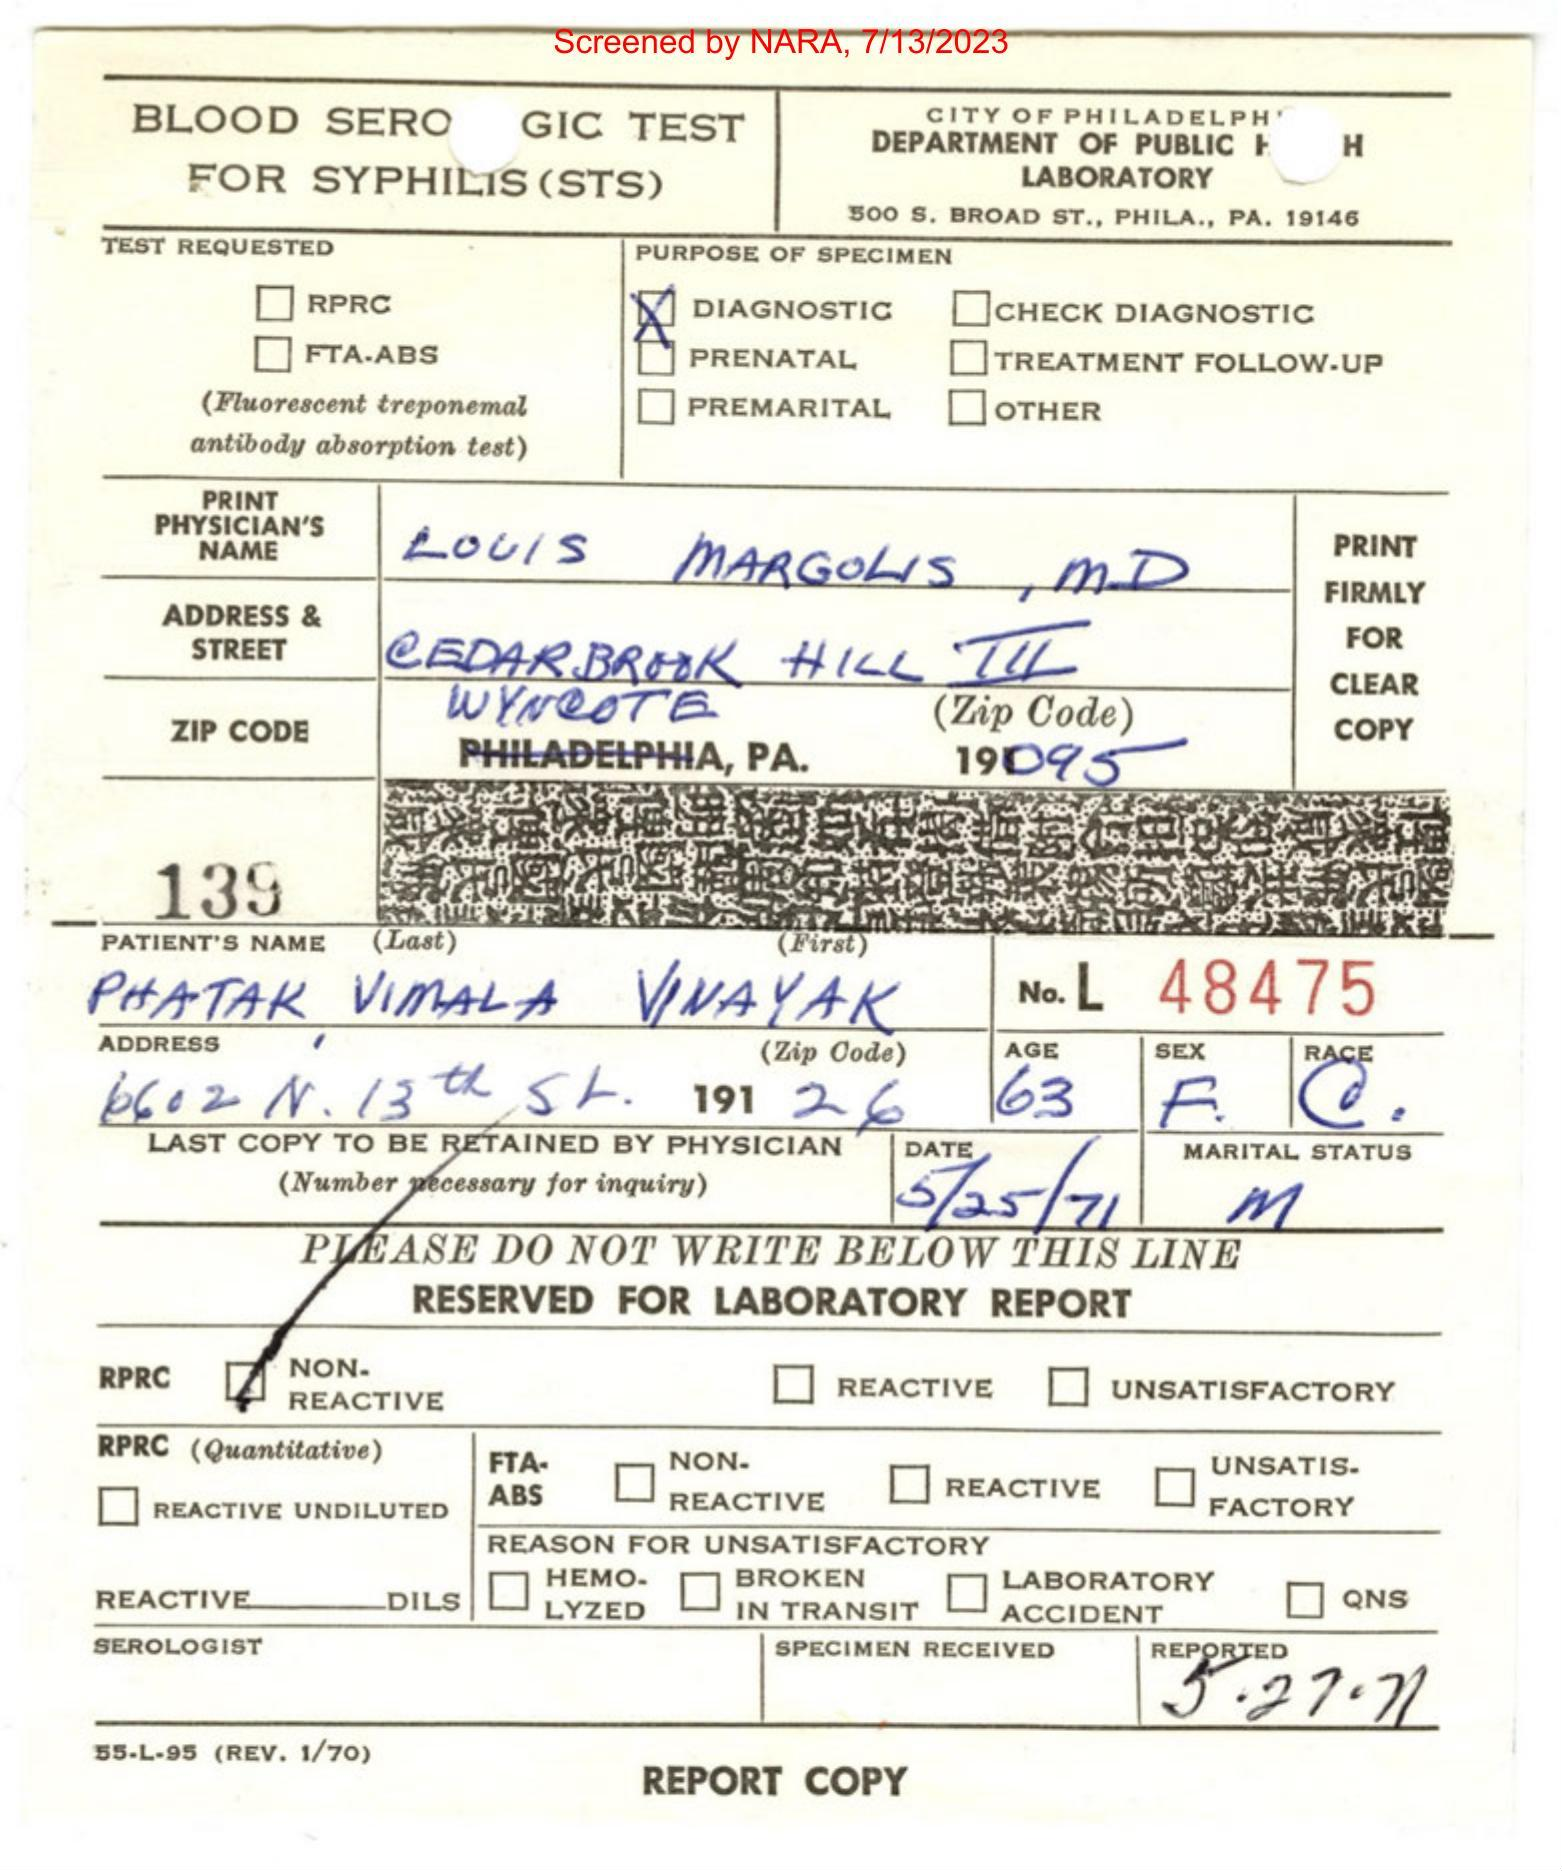 Screened by NARA, 7/13/2023
BLOOD SERO GIC TEST
FOR SYPHILIS (STS)
CITY OF PHILADELPH
DEPARTMENT OF PUBLIC H H
LABORATORY
500 S. BROAD ST., PHILA., PA. 19146
TEST REQUESTED
RPRC
FTA-ABS
(Fluorescent treponemal
antibody absorption test)
PURPOSE OF SPECIMEN
X DIAGNOSTIC CHECK DIAGNOSTIC
PRENATAL TREATMENT FOLLOW-UP
PREMARITAL OTHER
PRINT
PHYSICIAN'S
NAME
LOUIS MARGOLIS, M.D
ADDRESS &
STREET
CEDARBROOK HILL III
WYNCOTE (Zip Code)
ZIP CODE
PHILADELPHIA, PA. 19095
PRINT
FIRMLY
FOR
CLEAR
COPY
139
PATIENT'S NAME (Last) (First)
PHATAK, VIMALA VINAYAK
No. L 48475
ADDRESS (Zip Code)
6602 N. 13th St. 191 26
AGE SEX RACE
63 F. C.
LAST COPY TO BE RETAINED BY PHYSICIAN
(Number necessary for inquiry)
DATE
5/25/71
MARITAL STATUS
M
PLEASE DO NOT WRITE BELOW THIS LINE
RESERVED FOR LABORATORY REPORT
RPRC NON-
REACTIVE REACTIVE UNSATISFACTORY
RPRC (Quantitative)
REACTIVE UNDILUTED
REACTIVE DILS
FTA-
ABS
NON-
REACTIVE
REACTIVE
UNSATIS-
FACTORY
REASON FOR UNSATISFACTORY
HEMO-
LYZED
BROKEN
IN TRANSIT
LABORATORY
ACCIDENT
QNS
SEROLOGIST
SPECIMEN RECEIVED
REPORTED
5.27.71
55-L-95 (REV. 1/70)
REPORT COPY